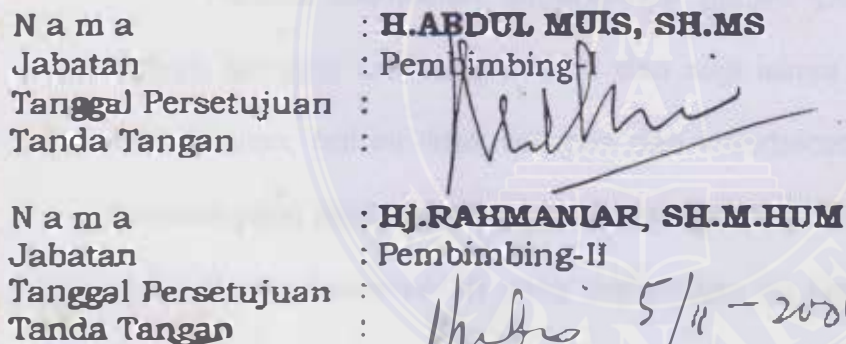 N a m a : H.ABDUL MUIS, SH.MS
Jabatan : Pembimbing-I
Tanggal Persetujuan :
Tanda Tangan :
N a m a : Hj.RAHMANIAR, SH.M.HUM
Jabatan : Pembimbing-II
Tanggal Persetujuan :
Tanda Tangan : 5/11-200